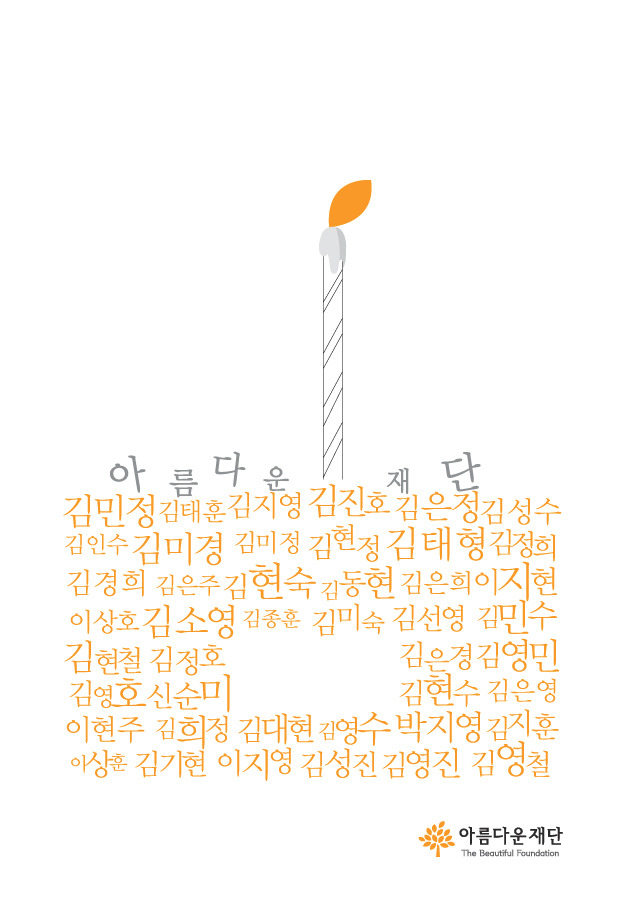 아름다운 재단
김민정 김태훈 김지영 김진호 김은정 김성수
김인수 김미경 김미정 김현정 김태형 김정희
김경희 김은주 김현숙 김동현 김은희 이지현
이상호 김소영 김종훈 김미숙 김선영 김민수
김현철 김정호 김은경 김영민
김영호 신순미 김현수 김은영
이현주 김희정 김대현 김영수 박지영 김지훈
이상훈 김기현 이지영 김성진 김영진 김영철
아름다운재단
The Beautiful Foundation